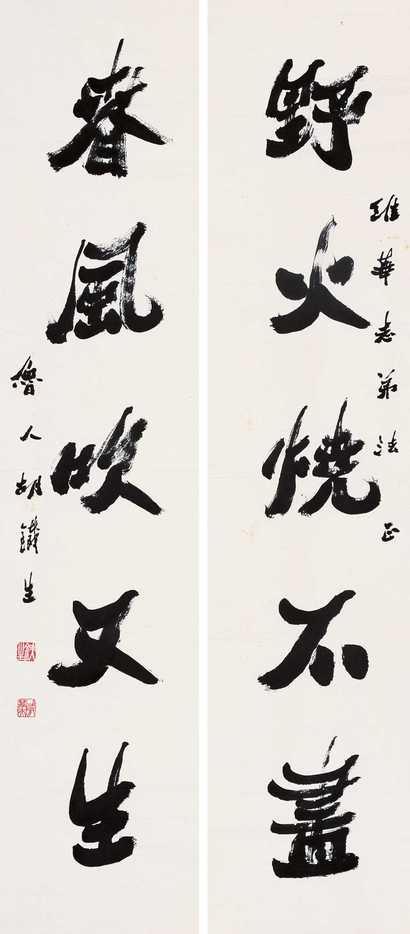 維華老弟法正
野火燒不盡
春風吹又生
魯人胡鐵生